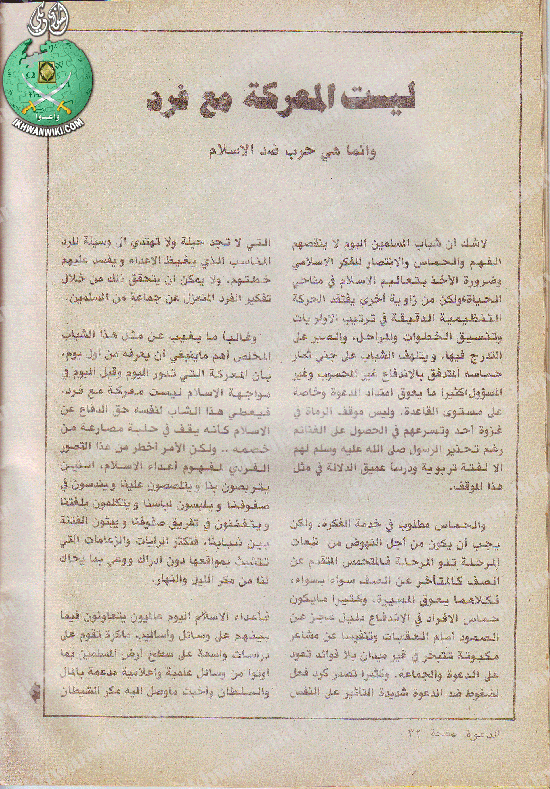 IKHWANWIKI.COM
ليست المعركة مع فرد
وانما هي حرب ضد الاسلام
لاشك أن شباب المسلمين اليوم لا ينقصهم
الفهم والحماس والانتصار للفكر الاسلامي
وضرورة الأخذ بتعاليم الاسلام في مناحي
الحياة ولكن من زاوية أخرى يفتقد الحركة
التنظيمية الدقيقة في ترتيب الاولويات
وتنسيق الخطوات والمراحل، والصبر على
التدرج فيها. ويتلهف الشباب على جني ثمار
حماسه المتدفق بالاندفاع غير المحسوب وغير
المسؤول اكثيرا ما يعوق امتداد الدعوة وخاصة
على مستوى القاعدة. وليس موقف الرماة في
غزوة أحد وتسرعهم في الحصول على الغنائم
رغم تحذير الرسول صلى الله عليه وسلم لهم
الا لفتة تربوية ودرسا عميق الدلالة في مثل
هذا الموقف.
والحماس مطلوب في خدمة الفكرة. ولكن
يجب أن يكون من أجل النهوض من تبعات
المرحلة تلو المرحلة فالمتحمس المتقدم عن
الصف كالمتأخر عن الصف سواء بسواء،
فكلاهما يعوق المسيرة. وكثيرا مايكون
حماس الافراد في الاندفاع دليل عجز عن
الصمود أمام العقبات وتنفيسا عن مشاعر
مكبوتة تنفجر في غير ميدان بلا فوائد تعود
على الدعوة والجماعة. وكثيرا تصدر كرد فعل
لضغوط ضد الدعوة شديدة التأثير على النفس
التي لا تجد حيلة ولا تهتدي الى وسيلة للرد
المناسب الذي يغيظ الاعداء ويفسد عليهم
خطتهم. ولا يمكن أن يتحقق ذلك من خلال
تفكير الفرد المنعزل عن جماعة من المسلمين.
وغالبا ما يغيب عن مثل هذا الشباب
المخلص أهم ماينبغي أن يعرفه من أول يوم،
بأن المعركة التي تدور اليوم وقبل اليوم في
مواجهة الاسلام ليست معركة مع فرد.
فيعطي هذا الشاب لنفسه حق الدفاع عن
الاسلام كأنه يقف في حلبة مصارعة من
خصمه .. ولكن الأمر أخطر من هذا التصور
الفردي لمفهوم أعداء الاسلام، الذين
يتربصون بنا ويتلصصون علينا ويندسون في
صفوفنا ويلبسون لباسنا ويتكلمون بلغتنا
ويتفننون في تفريق صفوفنا ويبثون الفتنة
بين شبابنا، فتكثر الرايات والزعامات التي
تتمسك بمواقعها دون ادراك ووعي بما يحاك
لنا من مكر الليل والنهار.
فأعداء الاسلام اليوم عالميون يتعاونون فيما
بينهم على وسائل وأساليب ماكرة تقوم على
دراسات واسعة على سطح أرض المسلمين بما
أوتوا من وسائل علمية واعلامية مدعمة بالمال
والسلطان وأخبث ماوصل اليه مكر الشيطان
الدعوة صفحة ٣٣